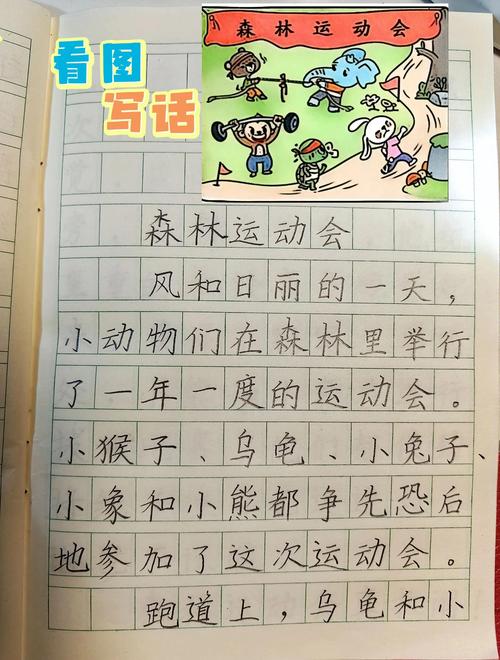 看图
写话
森林运动会
森林运动会
风和日丽的一天，
小动物们在森林里举行
了一年一度的运动会。
小猴子、乌龟、小兔子、
小象和小熊都争先恐后
地参加了这次运动会。
跑道上，乌龟和小